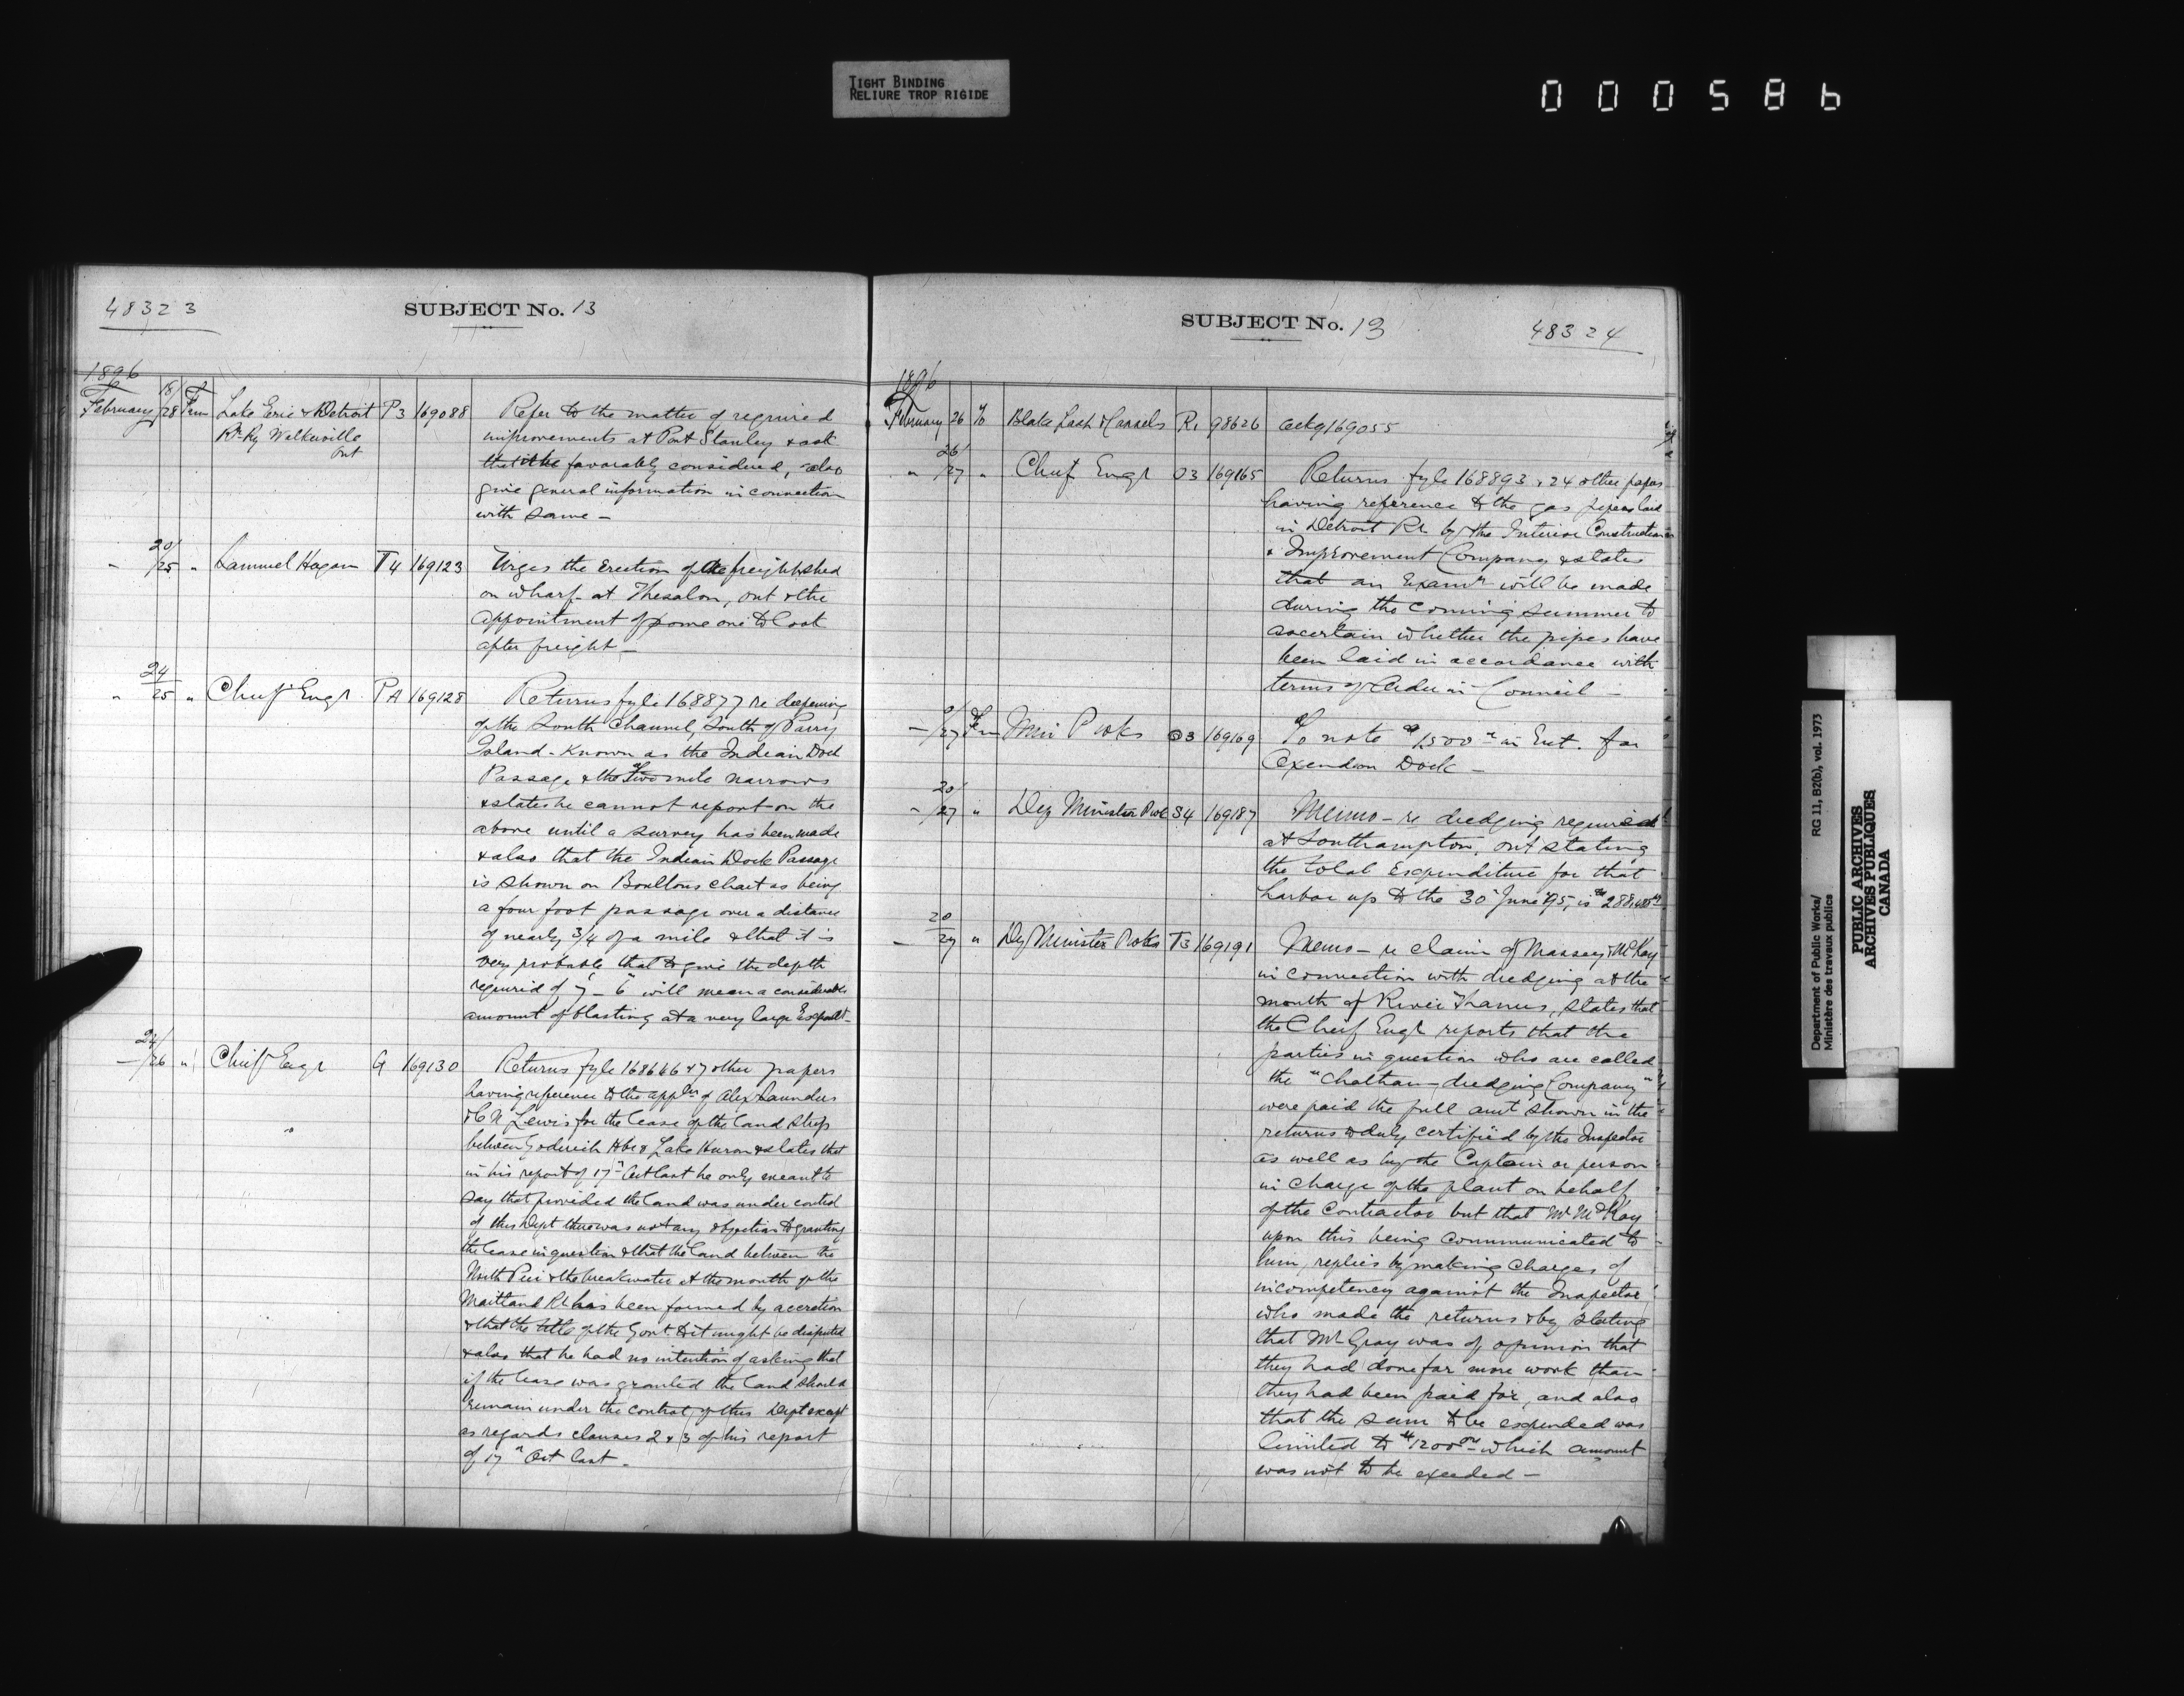 TIGHT BINDING
RELIURE TROP RIGIDE
000586
48323
SUBJECT No. 13
1896
February 18/28 From Lake Erie & Detroit P3 169088 Refer to the matter of required
Rr Ry Walkerville improvements at Port Stanley & ask
Ont
that it be favorably considered, also
give general information in connection
with same —
" 20/25 " Samuel Hagan T4 169123 Urges the erection of the freight shed
on wharf at Thesalon, Ont & the
appointment of some one to look
after freight —
" 24/25 " Chief Engr PA 169128 Returns fyle 168877 re deepening
of the South Channel, South of Parry
Island - Known as the Indian Dock
Passage & the Two mile narrows
& states he cannot report on the
above until a survey has been made
& also that the Indian Dock Passage
is shown on Boultons chart as being
a four foot passage over a distance
of nearly 3/4 of a mile & that it is
very probable that to give the depth
required of 7 - 6" will mean a considerable
amount of blasting at a very large
— 24/26 " Chief Engr G 169130 Returns fyle 168646 & 7 other papers
having reference to the appln of Alex Saunders
& C N Lewis for the lease of the land strip
between Goderich Hbr & Lake Huron & states that
in his report of 17th Oct last he only meant to
say that provided the land was under control
of this Dept there was not any objection to granting
the lease in question & that the land between the
North Pier & the breakwater at the mouth of the
Maitland Rr has been formed by accretion
& that the title of the Govt to it might be disputed
& also that he had no intention of asking that
if the lease was granted the land should
remain under the control of this Dept except
as regards clauses 2 & 3 of his report
of 17th Oct last —
SUBJECT No. 13
48324
1896
February 26 To Blake Lash & Cassels R1 98626 ackg 169055
" 26/27 " Chief Engr O3 169165 Returns fyle 168893 & 24 other papers
having reference to the gas pipes laid
in Detroit Rr by the Interior Construction
& Improvement Company & states
that an Examn will be made
during the coming summer to
ascertain whether the pipes have
been laid in accordance with
terms of Order in Council —
— /27 From Min P Wks O3 169169 To note $1500 in Est. for
Dock —
" 20/27 " Dep Minister P W S4 169187 Memo - re dredging required
at Southampton, Ont stating
the total Expenditure for that
harbor up to the 30 June 95, is
— 20/27 " Dy Minister P Wks T3 169191 Memo - re claim of Massey & McKay
in connection with dredging at the
mouth of River Thames, states that
the Cheif Engr reports that the
parties in question who are called
the "Chatham dredging Company"
were paid the full amt shown in the
returns & duly certified by the Inspector
as well as by the Captain or person
in charge of the plant on behalf
of the Contractor but that Mr McKay
upon this being communicated to
him, replies by making charges of
incompetency against the Inspector
who made the returns & by stating
that Mr Gray was of opinion that
they had done far more work than
they had been paid for, and also
that the sum to be expended was
limited to $1200 00 which amount
was not to be exceeded —
Department of Public Works/ RG 11, B2(b), vol. 1973
Ministère des travaux publics
PUBLIC ARCHIVES
ARCHIVES PUBLIQUES
CANADA